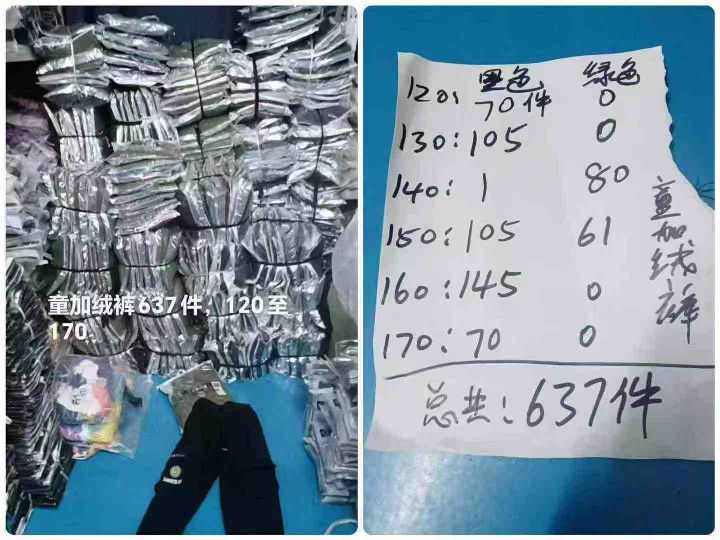 童加绒裤637件，120至
170
黑色 绿色
120: 70件 0
130:105 0
140: 1 80
150:105 61
160:145 0
170:70 0
童加绒裤
总共:637件